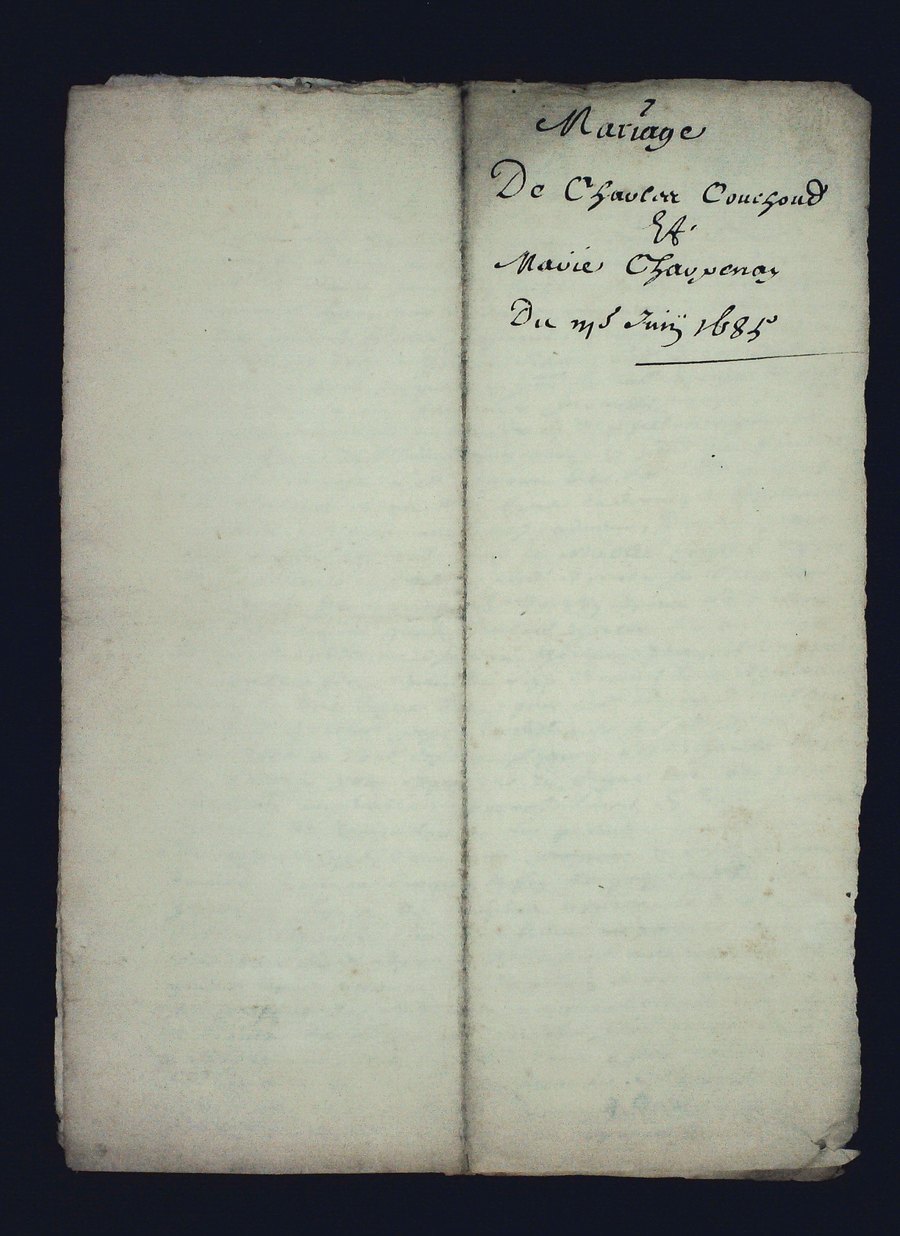 Mariage
De Charles Couchoud
Et
Marie Charpenay
Du Juin 1685